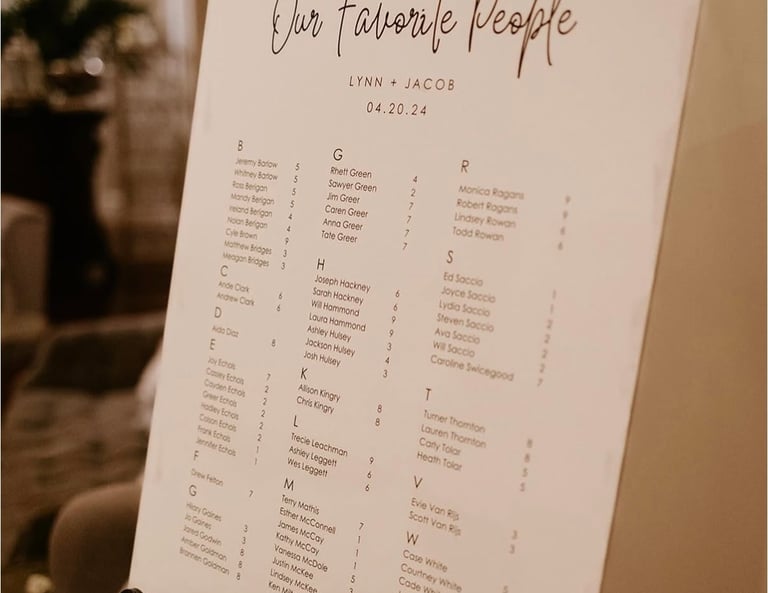 Our Favorite People
LYNN + JACOB
04.20.24
B
Jeremy Barlow 5
Whitney Barlow 5
Ross Berigan 5
Mandy Berigan 5
Ireland Berigan 4
Nolan Berigan 4
Cyle Brown 9
Matthew Bridges 3
Meagan Bridges 3
C
Ande Clark 6
Andrew Clark 6
D
Aida Diaz 8
E
Joy Echols 7
Cassey Echols 2
Cayden Echols 2
Greer Echols 2
Hadley Echols 2
Colson Echols 2
Frank Echols 1
Jennifer Echols 1
F
Drew Felton 7
G
Hilary Gaines 3
Jo Gaines 3
Jared Godwin 8
Amber Goldman 8
Brannen Goldman 8
G
Rhett Green 4
Sawyer Green 2
Jim Greer 7
Caren Greer 7
Anna Greer 7
Tate Greer 7
H
Joseph Hackney 6
Sarah Hackney 6
Will Hammond 9
Laura Hammond 9
Ashley Hulsey 3
Jackson Hulsey 4
Josh Hulsey 3
K
Allison Kingry 8
Chris Kingry 8
L
Trecie Leachman 9
Ashley Leggett 6
Wes Leggett 6
M
Terry Mathis 7
Esther McConnell 1
James McCay 1
Kathy McCay 1
Vanessa McDole 5
Justin McKee
Lindsey McKee
Ken
R
Monica Ragans 9
Robert Ragans 9
Lindsey Rowan 6
Todd Rowan 6
S
Ed Saccio 1
Joyce Saccio 1
Lydia Saccio 2
Steven Saccio 2
Ava Saccio 2
Will Saccio 2
Caroline Swicegood 7
T
Turner Thornton 8
Lauren Thornton 8
Carly Tolar 5
Heath Tolar 5
V
Evie Van Rijs 3
Scott Van Rijs 3
W
Case White 5
Courtney White
Cade White